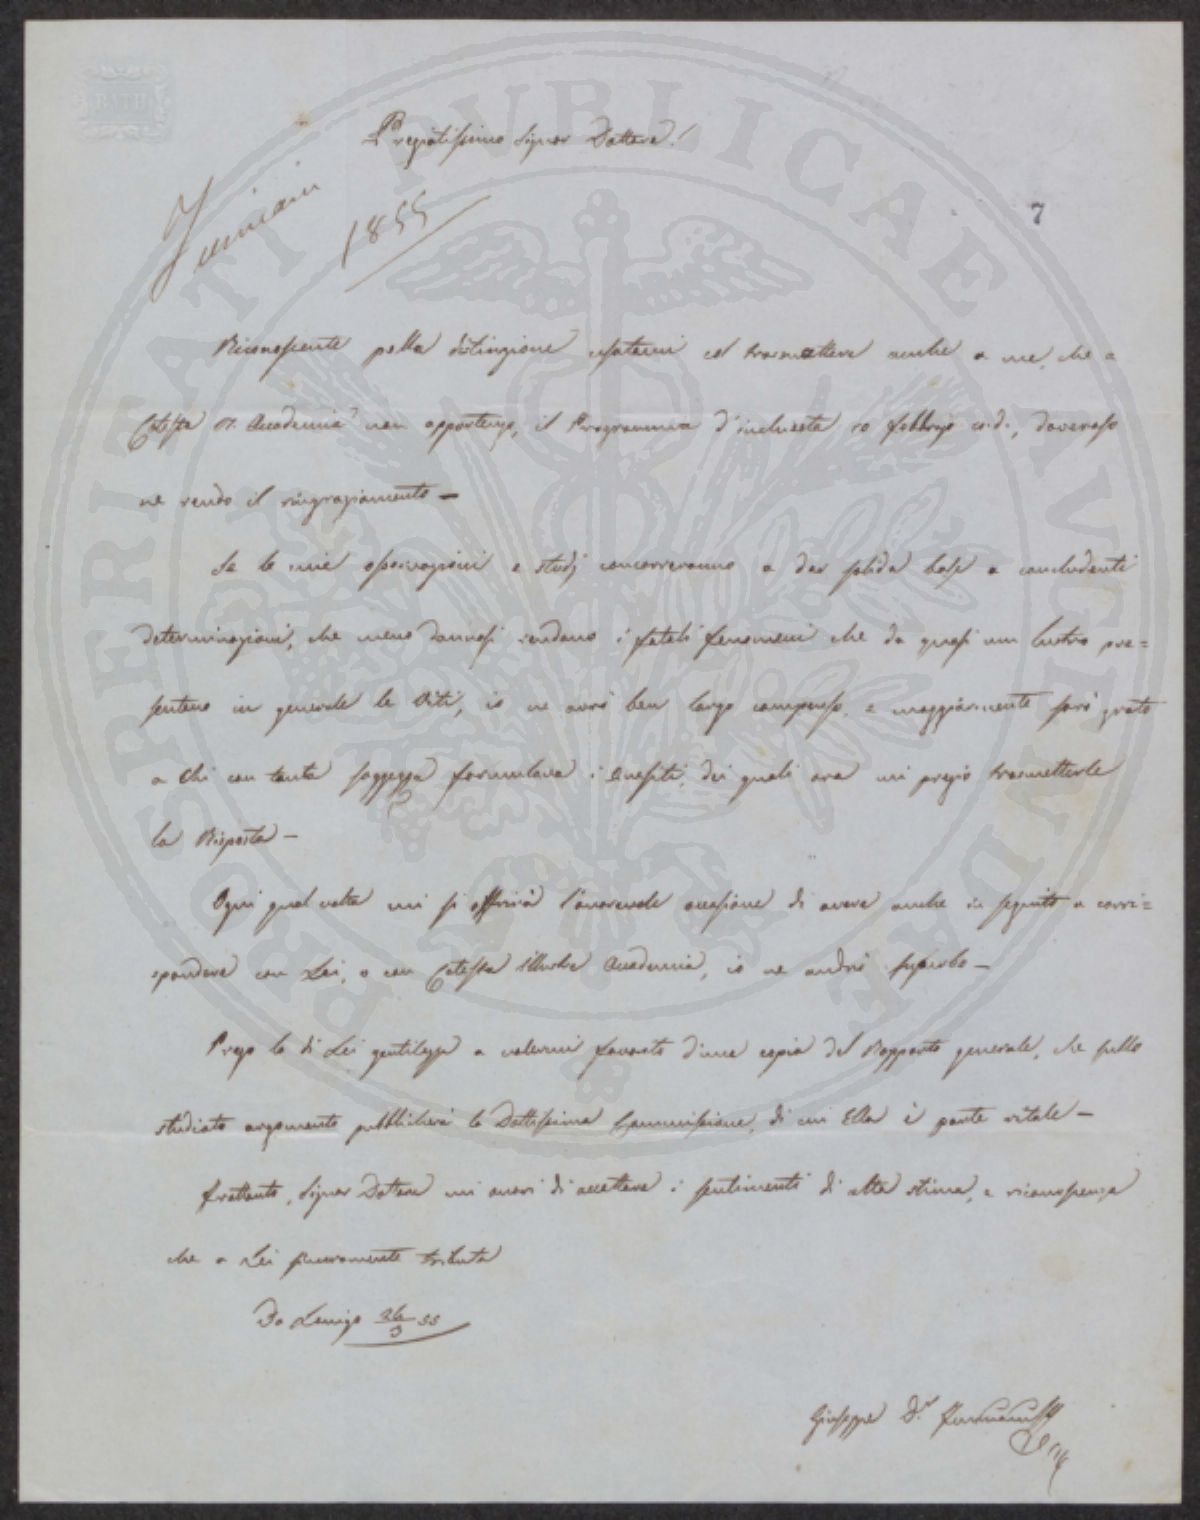 BATH
Pregiatissimo Signor Dottore!
1855
7
Riconoscente pella distinzione usatami col trasmettere anche a me, che a
Cotesta Accademia non appartengo, il Programma d'inchiesta 10 febbrajo doveroso
ne rendo il ringraziamento –
Se le mie osservazioni e studj concorreranno a dar solida base a concludenti
determinazioni, che meno dannosi rendano i fatali fenomeni che da quasi un lustro pre=
sentano in generale le Viti, io ne avrò ben largo compenso, e maggiormente sarò grato
a chi con tanta saggezza formulava i Quesiti, dei quali ora mi pregio trasmetterle
la Risposta –
Ogni qual volta mi si offrirà l'onorevole occasione di avere anche in seguito a corri=
spondere con Lei, o con Cotesta illustre Accademia, io ne andrò superbo –
Prego la di Lei gentilezza a volermi favorito d'una copia del Rapporto generale, che sullo
studiato argomento pubblicherà la Dottissima Commissione, di cui Ella è parte vitale –
Frattanto, Signor Dottore mi onori di accettare i sentimenti di alta stima, e riconoscenza
che a Lei sinceramente tributa
Da Lonigo 26/3 55
Giuseppe D.r
PROSPERITATI PUBLICAE AUGENDAE